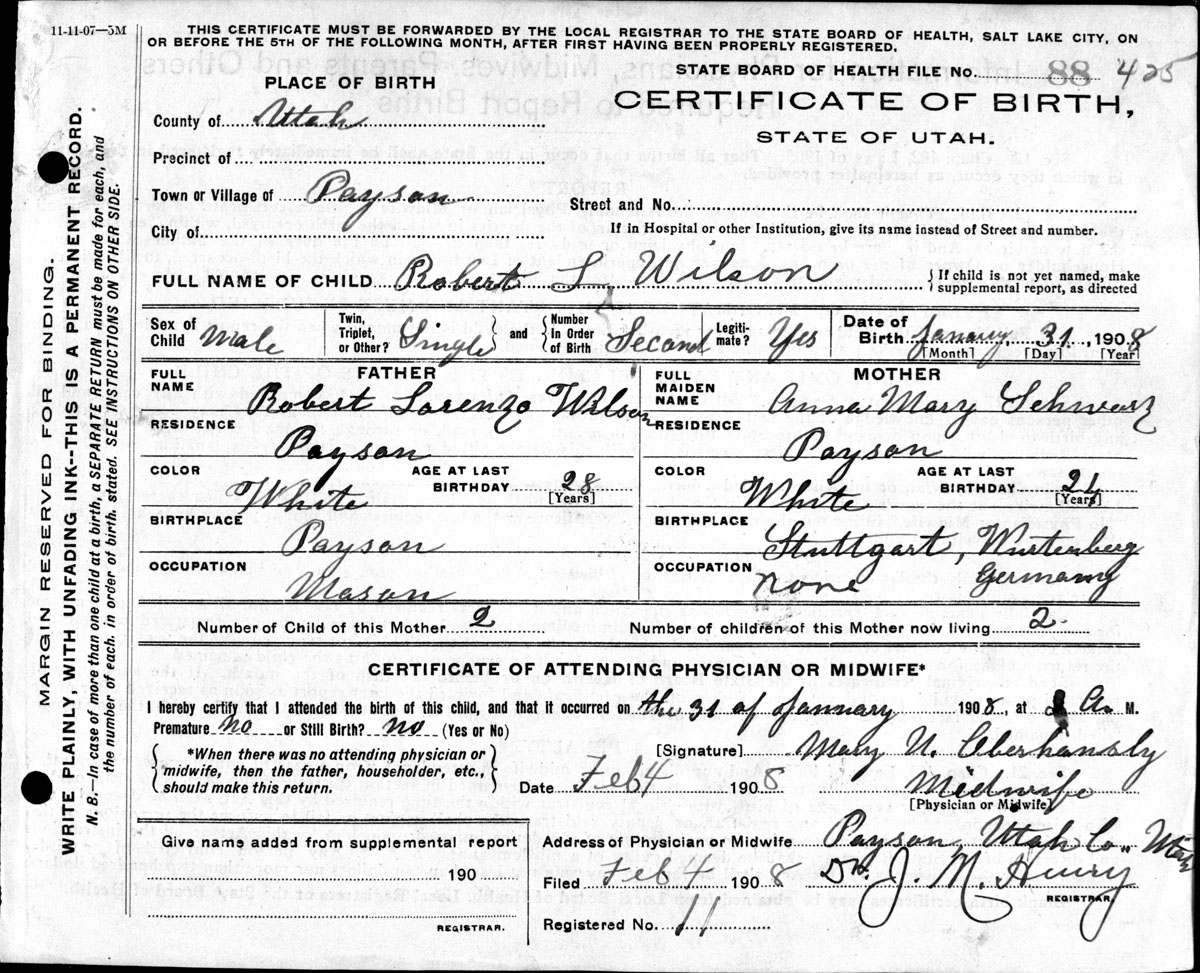 11-11-07—5M
THIS CERTIFICATE MUST BE FORWARDED BY THE LOCAL REGISTRAR TO THE STATE BOARD OF HEALTH, SALT LAKE CITY, ON
OR BEFORE THE 5TH OF THE FOLLOWING MONTH, AFTER FIRST HAVING BEEN PROPERLY REGISTERED.
STATE BOARD OF HEALTH FILE No. 88 425
CERTIFICATE OF BIRTH,
STATE OF UTAH.
PLACE OF BIRTH
County of Utah
Precinct of
Town or Village of Payson
Street and No.
City of
If in Hospital or other Institution, give its name instead of Street and number.
FULL NAME OF CHILD Robert L. Wilson { If child is not yet named, make
supplemental report, as directed
Sex of Child Male
Twin, Triplet, or Other? Single } and { Number in Order of Birth Second
Legiti-mate? Yes
Date of Birth January 31, 1908
[Month] [Day] [Year]
FATHER
FULL NAME Robert Lorenzo Wilson
RESIDENCE Payson
COLOR White
AGE AT LAST BIRTHDAY 28 [Years]
BIRTHPLACE Payson
OCCUPATION Mason
MOTHER
FULL MAIDEN NAME Anna Mary Schwarz
RESIDENCE Payson
COLOR White
AGE AT LAST BIRTHDAY 24 [Years]
BIRTHPLACE Stuttgart, Wurtenberg
Germany
OCCUPATION None
Number of Child of this Mother 2
Number of children of this Mother now living 2.
CERTIFICATE OF ATTENDING PHYSICIAN OR MIDWIFE*
I hereby certify that I attended the birth of this child, and that it occurred on the 31 of January 1908, at A. M.
Premature no or Still Birth? no (Yes or No)
{ *When there was no attending physician or
midwife, then the father, householder, etc.,
should make this return. }
[Signature] Mary U. Oberhansly
Date Feb 4 1908
Midwife
[Physician or Midwife]
Give name added from supplemental report
190
REGISTRAR.
Address of Physician or Midwife Payson, Utah Co. Utah
Filed Feb 4 1908 Dr. J. M. Henry
REGISTRAR.
Registered No. 11
MARGIN RESERVED FOR BINDING.
WRITE PLAINLY, WITH UNFADING INK--THIS IS A PERMANENT RECORD.
N. B.—In case of more than one child at a birth, a SEPARATE RETURN must be made for each, and
the number of each, in order of birth, stated. SEE INSTRUCTIONS ON OTHER SIDE.